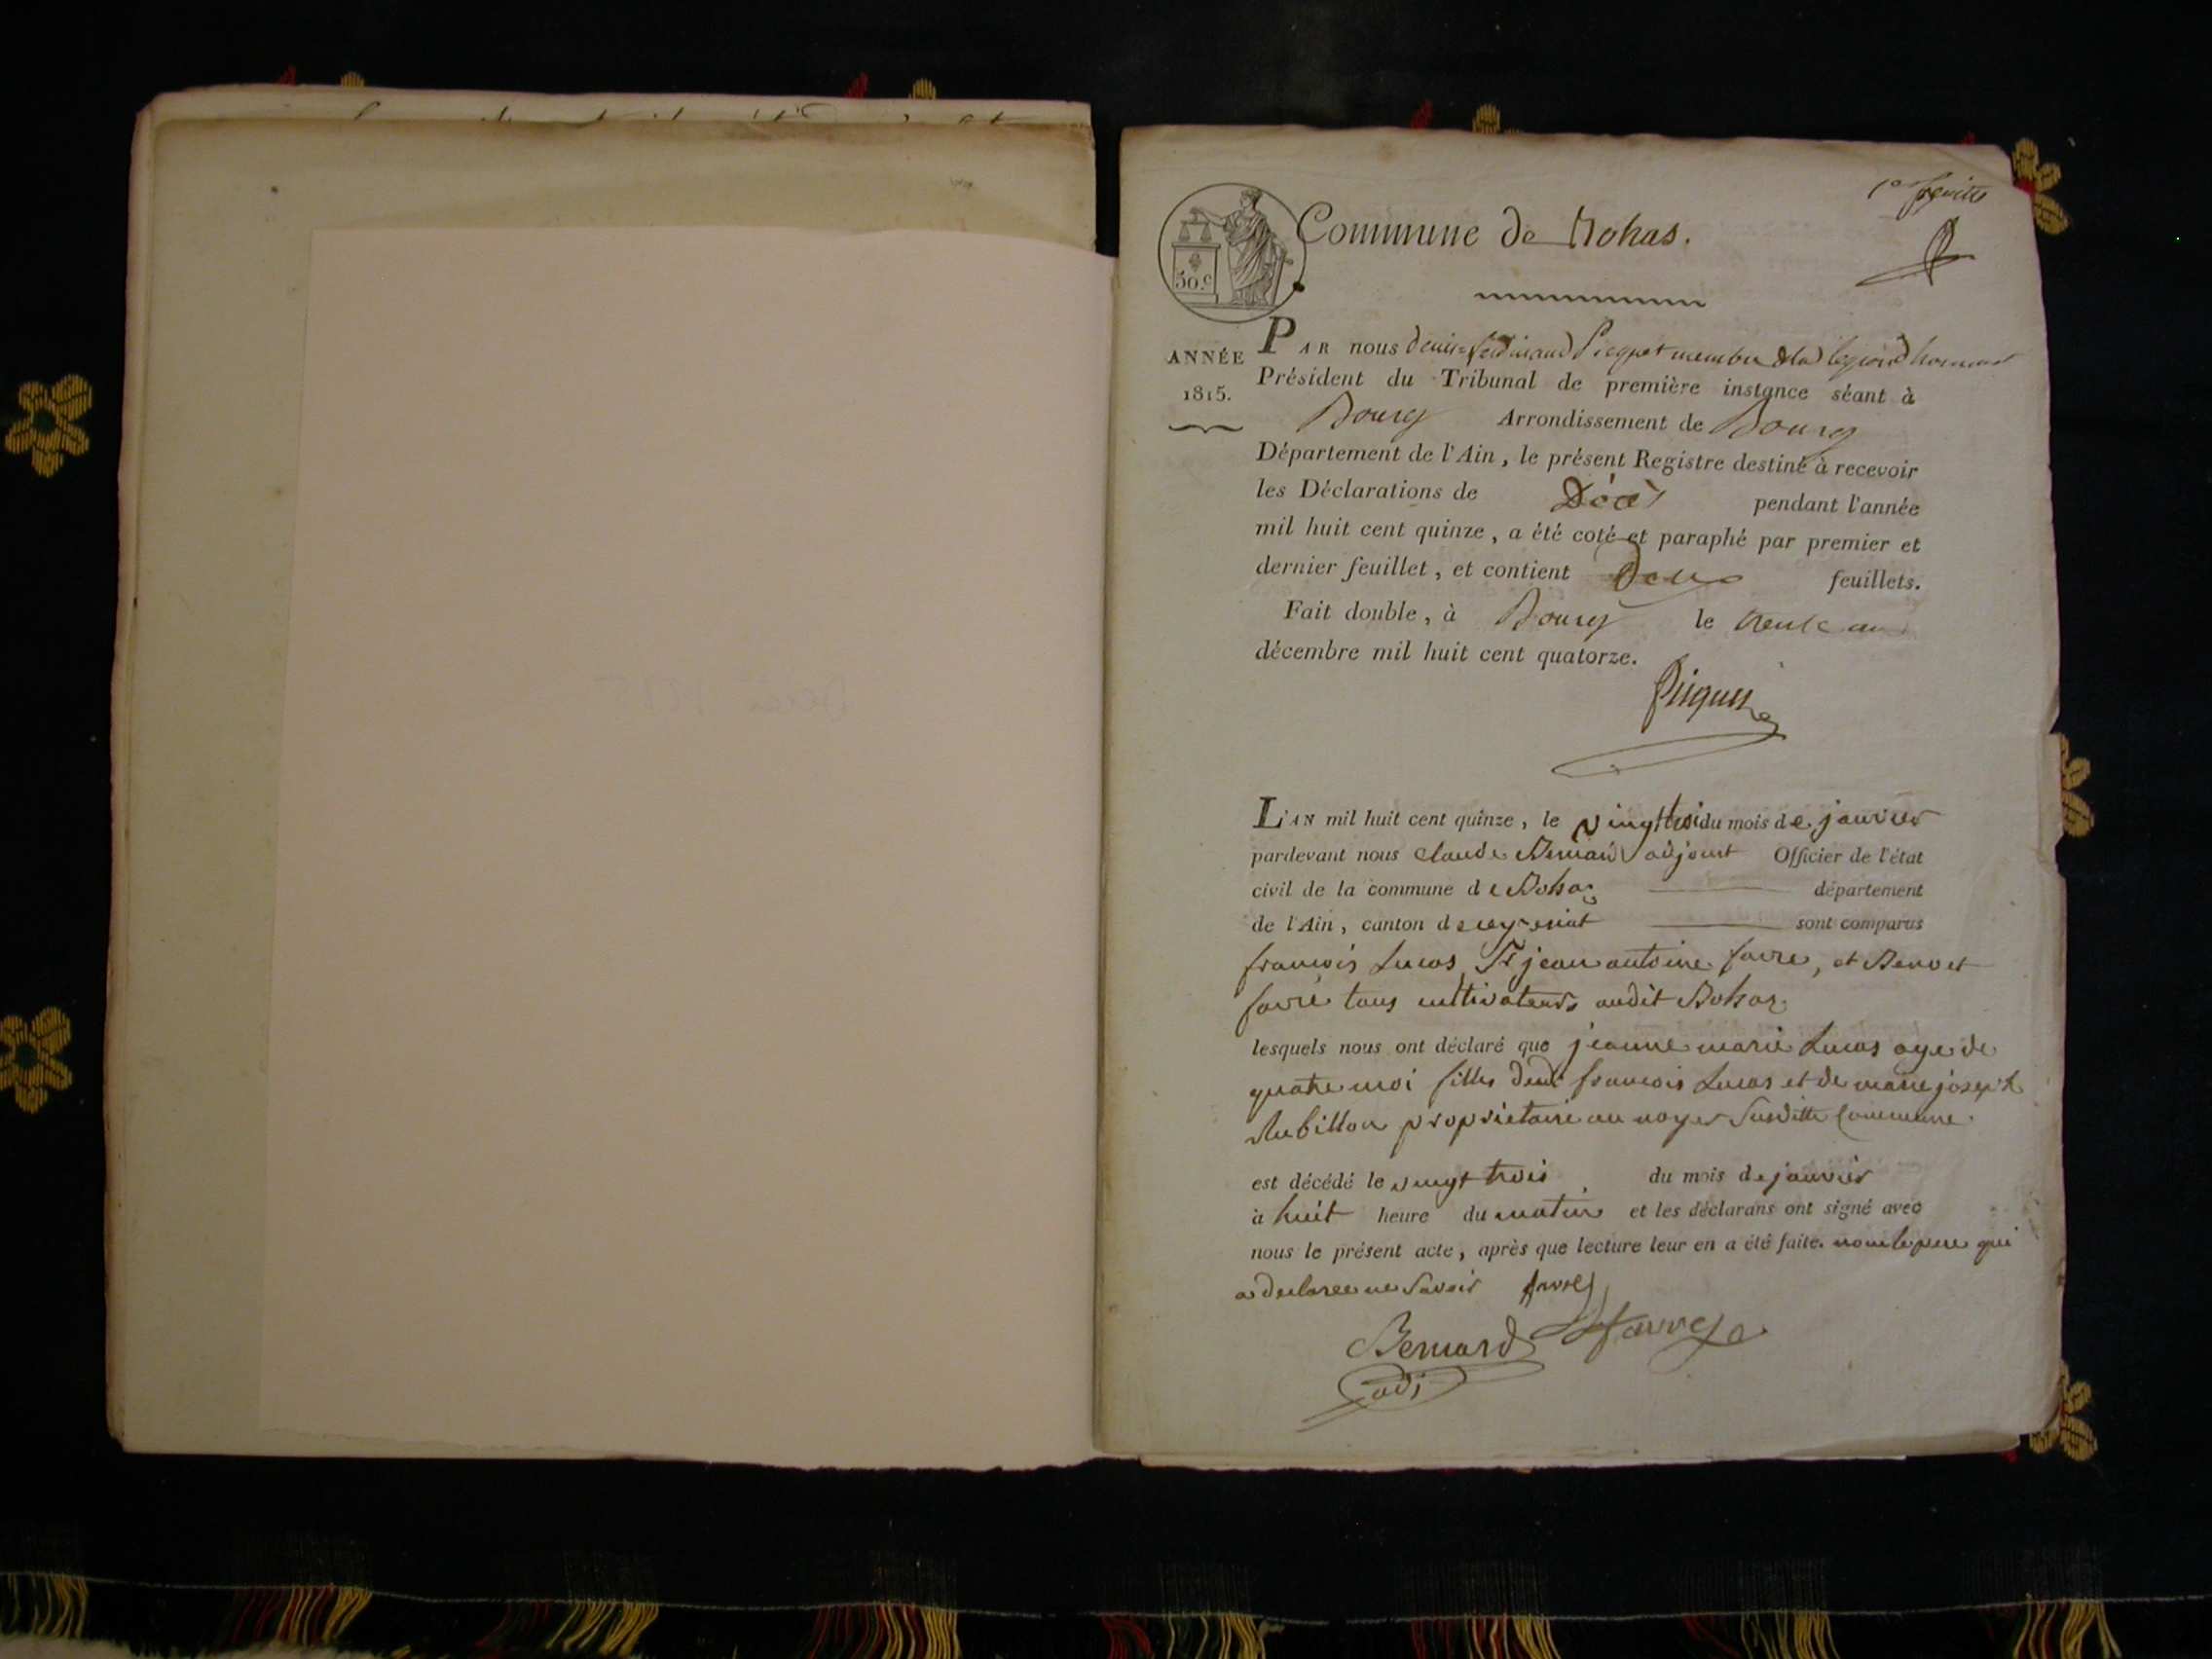 1er feuillet
Commune de Bohas.
50.c
ANNÉE
1815.
PAR nous denis ferdinand Picquet membre de la legion d honneur
Président du Tribunal de première instance séant à
Bourg Arrondissement de Bourg
Département de l'Ain, le présent Registre destiné à recevoir
les Déclarations de Décès pendant l'année
mil huit cent quinze, a été coté et paraphé par premier et
dernier feuillet, et contient Deux feuillets.
Fait double, à Bourg le trente un
décembre mil huit cent quatorze.
Picquet
L'AN mil huit cent quinze, le vingt troi du mois de janvier
pardevant nous claude Bernard adjoint Officier de l'état
civil de la commune de Bohas département
de l'Ain, canton de ceyzeriat sont comparus
francois Lucas, Sr jean antoine favre, et Benoit
favre tous cultivateurs audit Bohas
lesquels nous ont déclaré que jeanne marie Lucas age de
quatre moi filles dudt francois Lucas et de marie joseph
Rubillon propriétaire au noyer Susditte Commune.
est décédé le vingt trois du mois de janvier
à huit heure du matin et les déclarans ont signé avec
nous le présent acte, après que lecture leur en a été faite. non le pere qui
a declaree ne Savoir favre
Bernard favre
adj